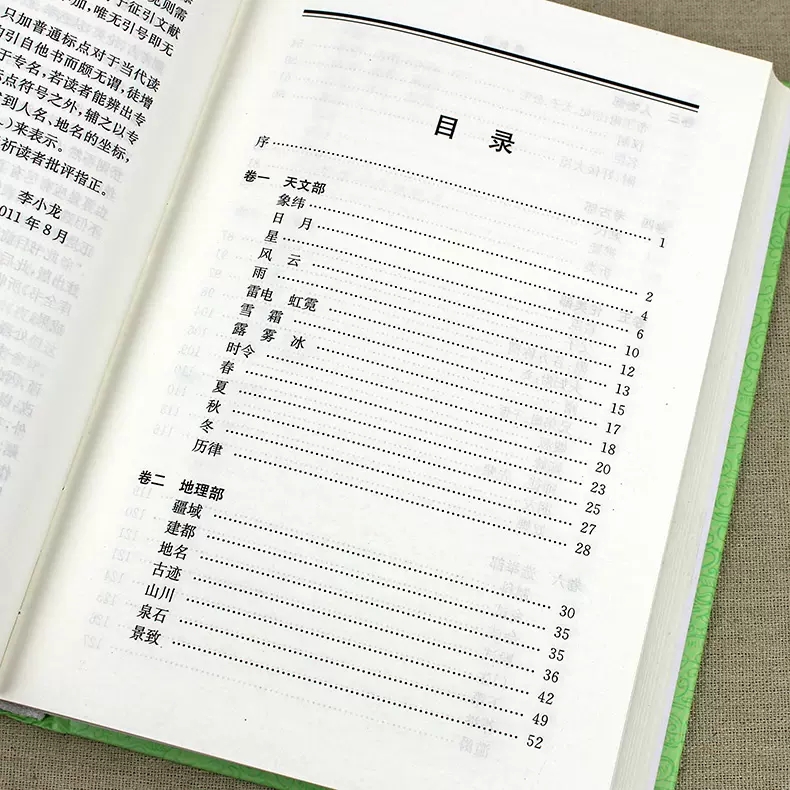 则需
于征引文献
加，唯无引号即无
只加普通标点对于当代读
引自他书而颇无谓，徒增
于专名，若读者能辨出专
点符号之外，辅之以专
到人名、地名的坐标，
）来表示。
祈读者批评指正。
李小龙
011年8月
目录
序 1
卷一 天文部
象纬 2
日 月 4
星 6
风 云 10
雨 12
雷电 虹霓 13
雪 霜 15
露 雾 冰 17
时令 18
春 20
夏 23
秋 25
冬 27
历律 28
卷二 地理部
疆域 30
建都 35
地名 35
古迹 36
山川 42
泉石 49
景致 52